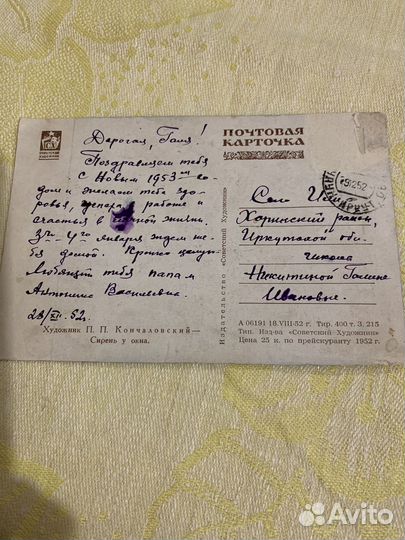 СОВЕТСКИЙ ХУДОЖНИК
Дорогая, Галя!
Поздравляем тебя
с Новым 1953 им го-
дом и желаем тебе здо-
ровья, в работе и
счастья в личной жизни.
3го-4го января ждем те-
бя домой. Крепко целую
Любящий тебя папа
Антонина Васильевна.
28/XII.52г.
Художник П. П. Кончаловский—
Сирень у окна.
Издательство «Советский Художник»
ПОЧТОВАЯ
КАРТОЧКА
Село
район,
Иркутской обл.
школа
Никитиной Галине
Ивановне.
А 06191 18.VIII-52 г. Тир. 400 т. З. 215
Тип. Изд-ва «Советский Художник»
Цена 25 к. по прейскуранту 1952 г.
Avito